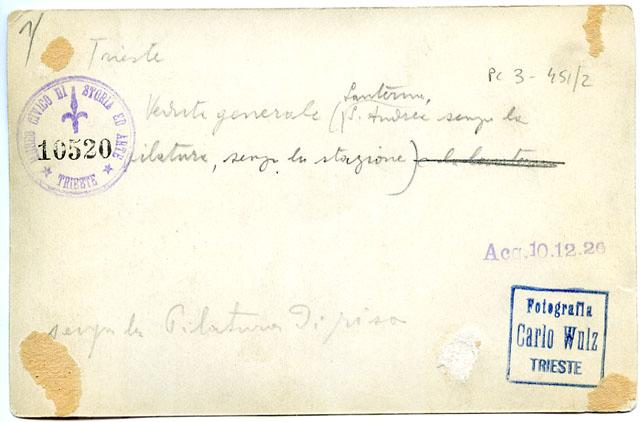 1/
Trieste
PC 3-451/2
Lanterna,
Veduta generale (S. Andrea senza la
pilatura, senza la stazione)
CIVICO DI STORIA ED ARTE
10520
TRIESTE
Acq. 10.12.26
senza la Pilatura di riso
Fotografia
Carlo Wulz
TRIESTE